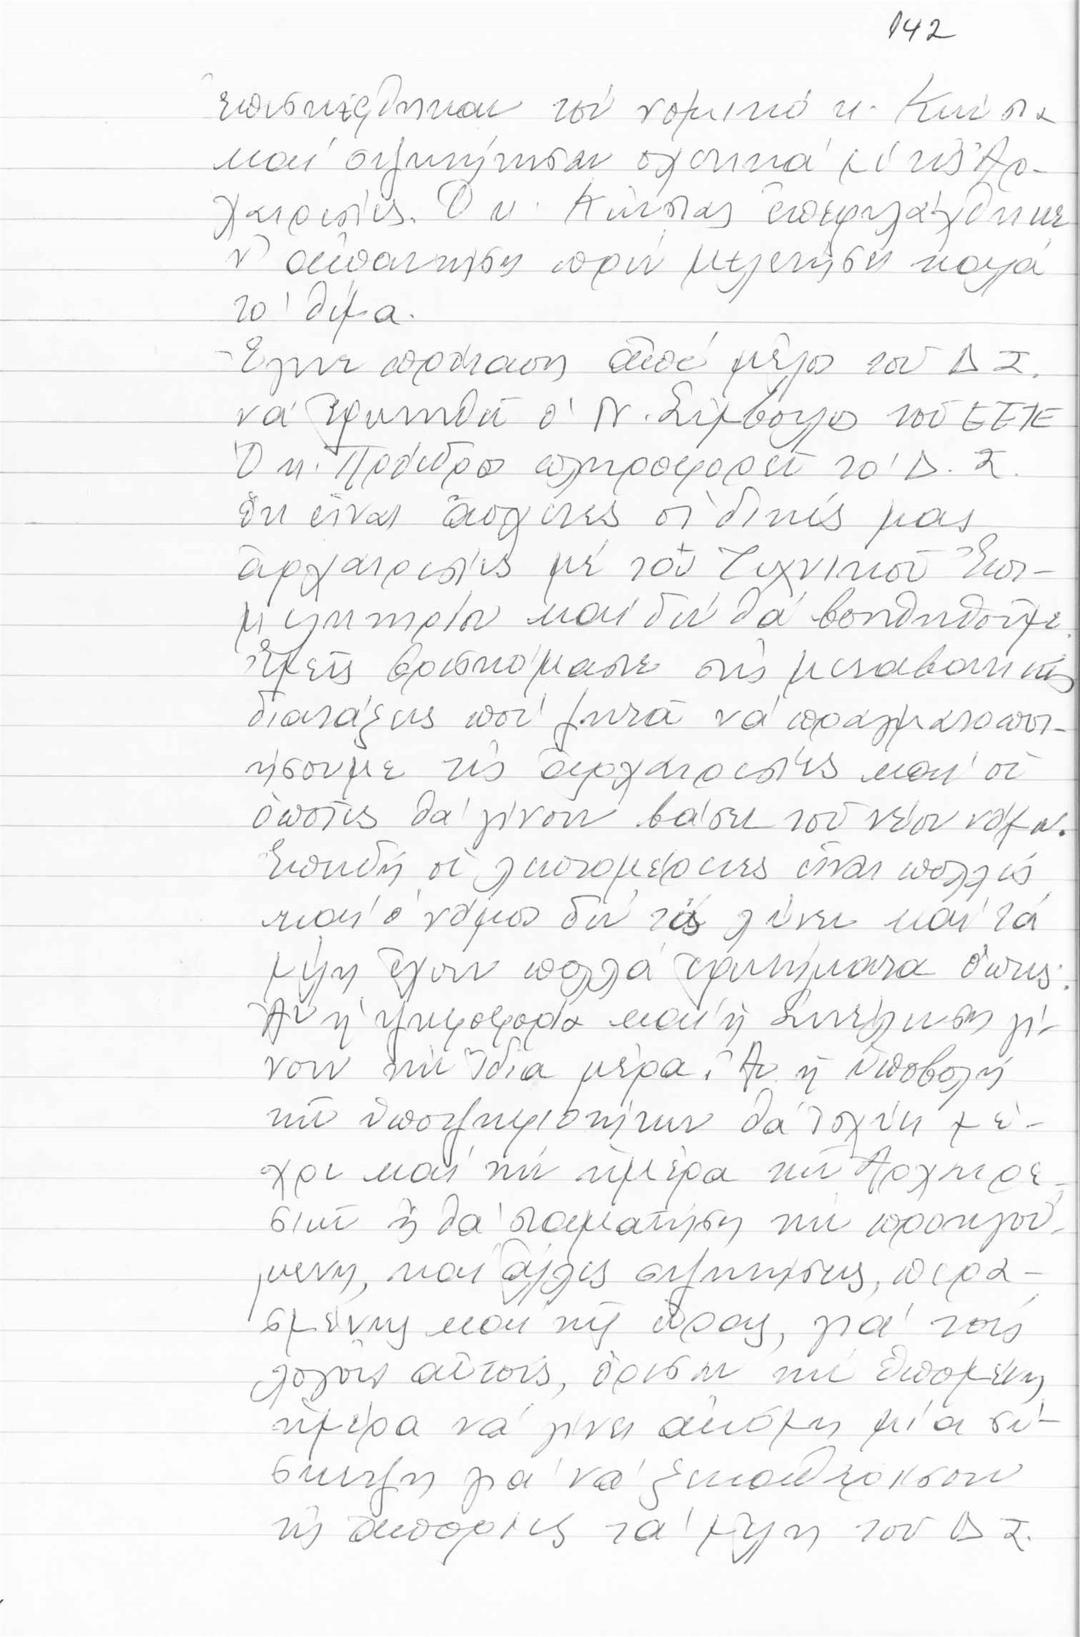 142
ἐπισκέφθηκαν τόν νομικό κ. Κώτσια
καί συζητήσαν σχετικά μέ τίς Ἀρ-
χαιρεσίες. Ὁ κ. Κώτσιας ἐπεφυλάχθηκε
ν' ἀπαντήση πρίν μελετήση καλά
τό θέμα.
Ἔγινε πρόταση ἀπό μέλος τοῦ Δ Σ.
νά ἐρωτηθῆ ὁ Ν. Σύμβουλος τοῦ ΕΕΤΕ
Ὁ κ. Πρόεδρος πληροφορεῖ τό Δ. Σ.
ὅτι εἶναι ἄσχετες οἱ δικές μας
ἀρχαιρεσίες μέ τοῦ Τεχνικοῦ Ἐπι-
μελητηρίου καί δέν θά βοηθηθοῦμε.
Ἐμεῖς βρισκόμαστε στίς μεταβατικές
διατάξεις πού ζητᾶ νά πραγματοποι-
ήσουμε τίς ἀρχαιρεσίες καί οἱ
ὁποῖες θά γίνουν βάσει τοῦ νέου νόμου.
Ἐπειδή οἱ λεπτομέρειες εἶναι πολλές
καί ὁ νόμος δέν τάς λύνει καί τά
μέλη ἔχουν πολλά ἐρωτήματα ὅπως:
Ἄν ἡ ψηφοφορία καί ἡ Συνέλευση γί-
νουν τήν ἴδια μέρα. Ἄν ἡ ὑποβολή
τῶν ὑποψηφιοτήτων θά ἰσχύει μέ-
χρι καί τήν ἡμέρα τῶν Ἀρχαιρε-
σιῶν ἤ θά σταματήση τήν προηγού-
μενη, καί ἄλλες συζητήσεις, περα-
σμένης καί τῆς ὥρας, γιά τούς
λόγους αὐτούς, ὅρισαν τήν ἑπομένη
ἡμέρα νά γίνει ἀκόμη μία σύ-
σκεψη γιά νά ξεκαθαρίσουν
τίς ἀπορίες τά μέλη τοῦ Δ Σ.